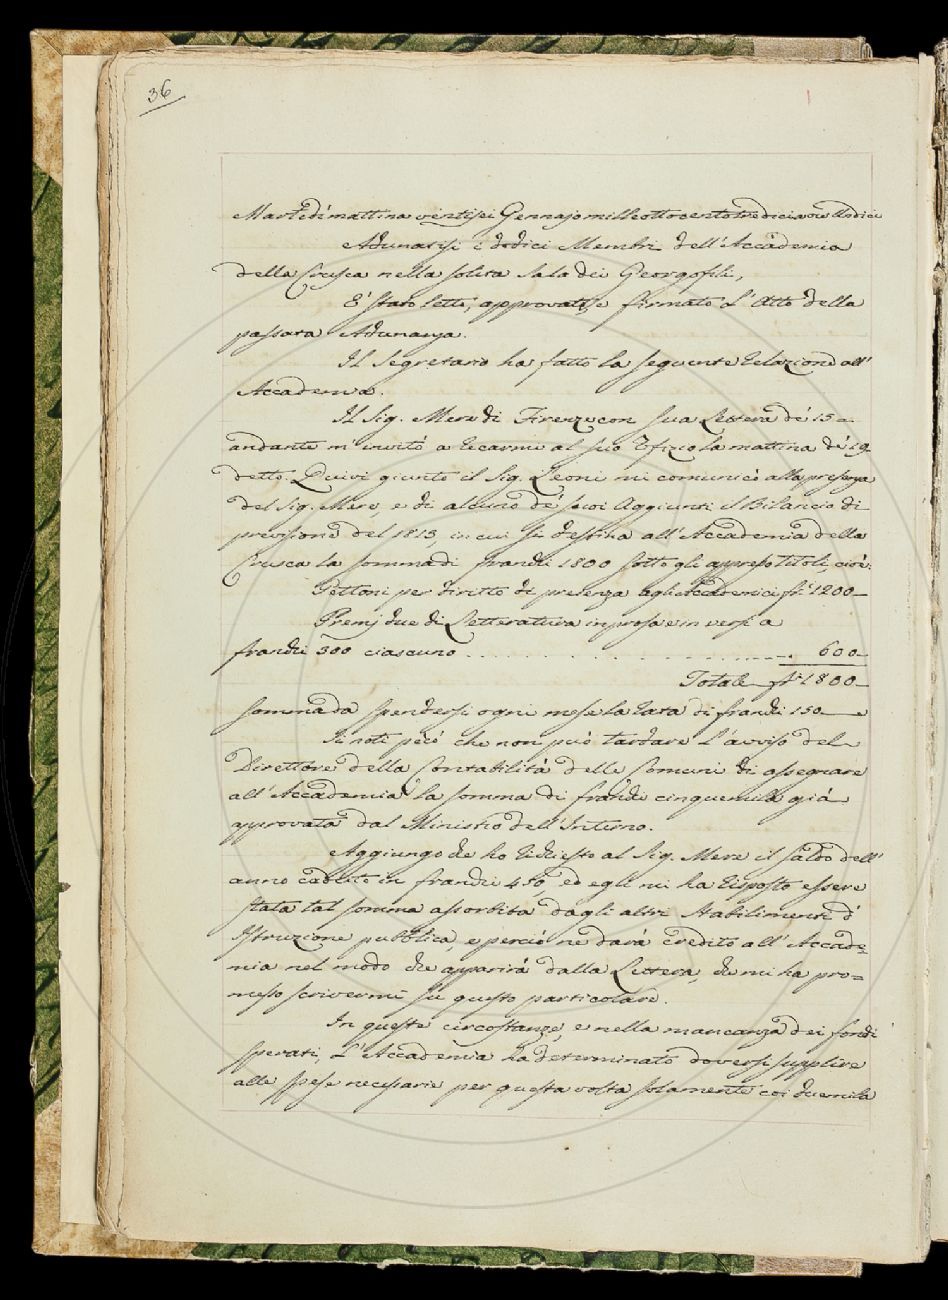 36
Martedì mattina ventisei Gennajo mille ottocento tredici a ore Undici
Adunatisi i dodici Membri dell'Accademia
della Crusca nella solita Sala dei Georgofili,
E' stato letto, approvato, e firmato L'Atto della
passata Adunanza.
Il Segretario ha fatto la seguente Relazione all'
Accademia.
Il Sig. Mere di Firenze con sua Lettera de' 15
andante m'invitò a recarmi al suo Ofizio la mattina de' 19
detto. Quivi giunto il Sig. Leoni mi comunicò alla presenza
del Sig. Mere, e di alcuno de' suoi Aggiunti il Bilancio di
previsione del 1813, in cui si destina all'Accademia della
Crusca la somma di franchi 1800 sotto gli appresso titoli, cioè:
Gettoni per diritto di presenza agli Accademici fr. 1200
Premj due di Letteratura in prosa e in versi a
franchi 300 ciascuno . . . . . . . . . . 600
Totale fr. 1800
somma da spendersi ogni mese la rata di franchi 150
Si noti però che non può tardare L'avviso del
Direttore della Contabilità delle Comuni di assegnare
all'Accademia la somma di franchi cinquemila già
approvata dal Ministro dell'Interno.
Aggiungo che ho richiesto al Sig. Mere il saldo dell'
anno caduto in franchi 450, ed egli mi ha risposto essere
stata tal somma assorbita dagli altri stabilimenti d'
Istruzione pubblica, e perciò ne darà credito all'Accade=
mia nel modo che apparirà dalla Lettera, che mi ha pro=
messo scrivermi su questo particolare.
In queste circostanze, e nella mancanza dei fondi
sperati, L'Accademia ha determinato doversi supplire
alle spese necessarie per questa volta solamente coi duemila